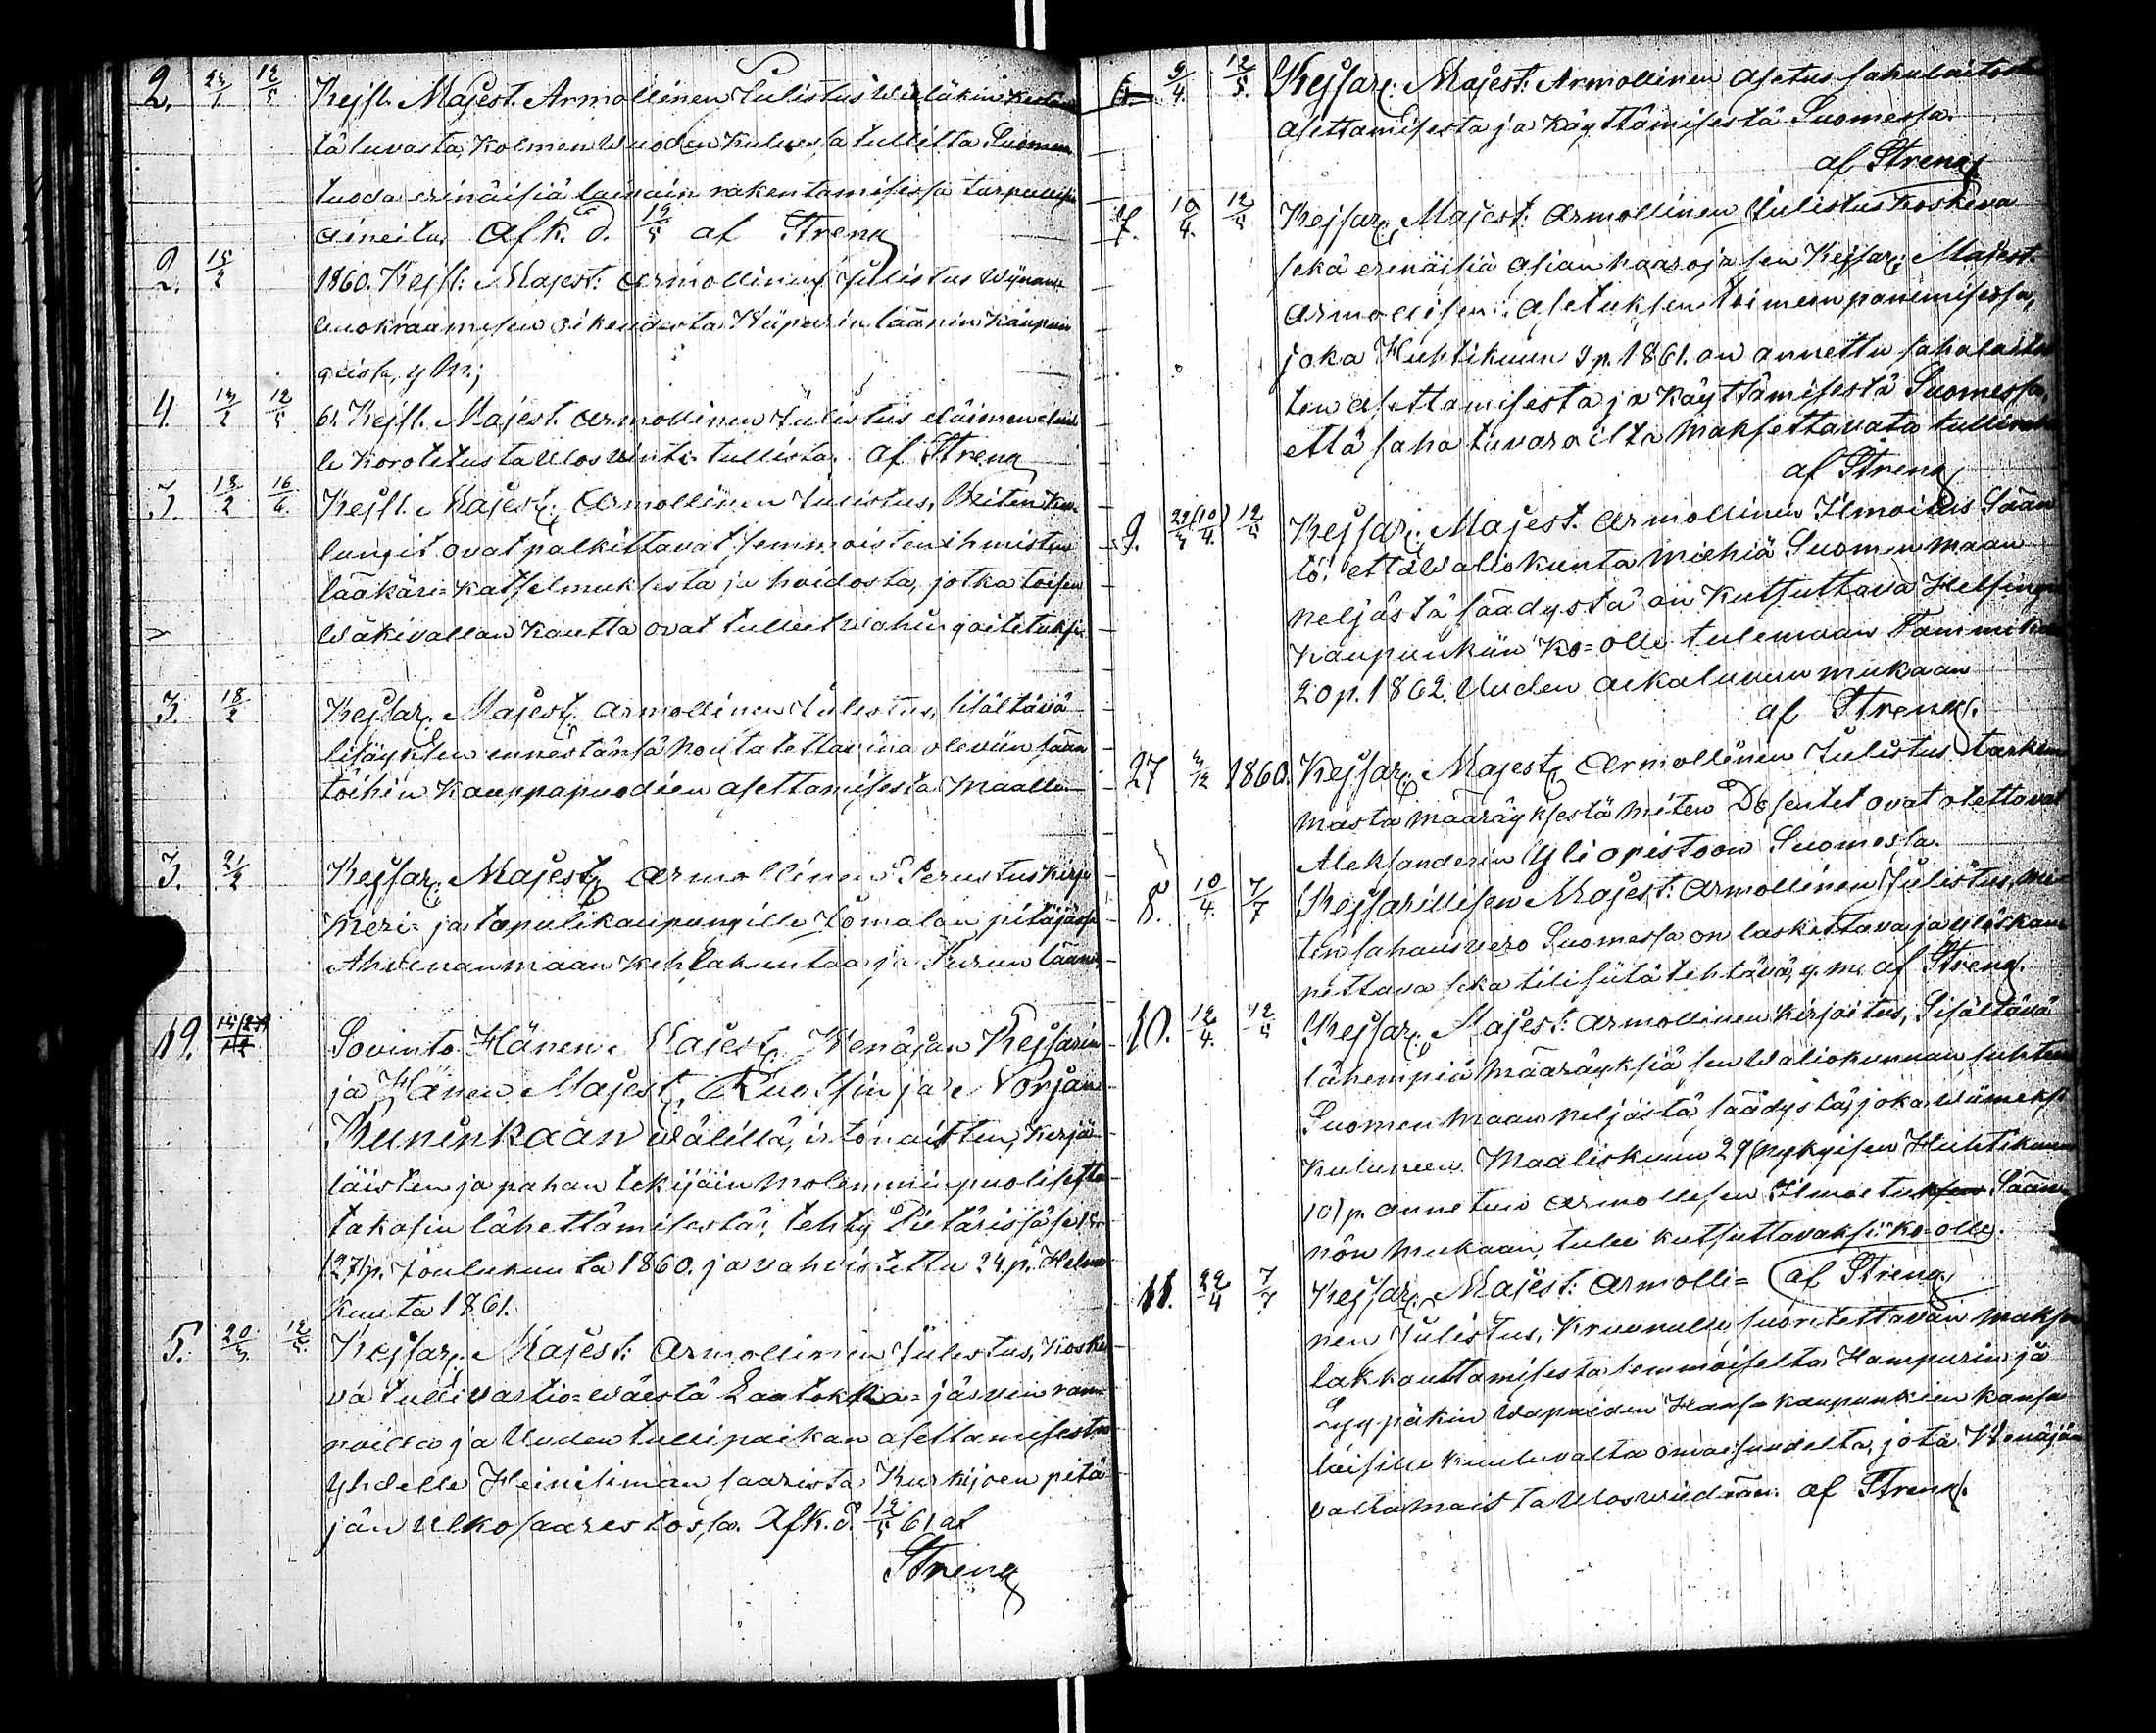 2. 23/1 12/5 Kejsl. Majest. Armollinen Julistus Wieläkin kestäwä
tä luvasta, kolmen wuoden kuluessa tullitta Suomeen
tuoda erinäisiä laivain rakentamisessa tarpeellisia
aineita, Afk. d. 12/5 af Streng
2. 15/2 1860. Kejsl: Majest: Armollinen Julistus Wijnan
wuokraamisen oikeudesta Wiipurin läänin kaupun
geissa, y. m.;
4. 13/2 12/5 61. Kejsl. Majest. Armollinen Julistus eläimen
le korotetusta Uloswienti-tullista. af Streng
3. 18/2 16/6. Kejsl. Majest: Armollinen Julistus, Miten
lungit ovat palkittavat semmoisten ihmisten
lääkäri-katselmuksesta ja hoidosta, jotka toisen
Wäkivallan kautta ovat tulleet wahingoitetuksi
3. 18/2 Kejsar. Majest. Armollinen Julistus, sisältävä
lisäyksen ennestänsä noutatettavina oleviin sään
töihin kauppapuodien asettamisesta Maalle
3. 21/2 Kejsar. Majest. Armollinen Perustuskirja
Meri- ja tapulikaupungille Jomalan pitäjässä
Ahvenanmaan kihlakuntaa ja Turun lääniä
19. 15(27)/12 Sovinto Hänen Majest. Wenäjän Kejsarin
ja Hänen Majest. Ruotsin ja Norjan
Kuninkaan wälillä, irtonaisten, kerjä
läisten ja pahan tekijäin molemminpuolisesta
takasin lähettämisestä; tehty Pietarissa se 15
(27)p. Joulukuuta 1860. ja vahvistettu 24.p. Helmi
kuuta 1861.
5. 20/3 12/5 Kejsar. Majest: Armollinen Julistus, koske
va tullivartio-wäestä Laatokka-järwen ran
noilla ja Uuden tullipaikan asettamisesta
yhdelle Heinäsimän saarista Kurkijoen pitä
jän ulkosaaristossa. Afk. d. 12/5 61 af
Streng
6. 9/4. 12/5. Kejsar: Majest: Armollinen Asetus sahalaitosten
asettamisesta ja käyttämisestä Suomessa.
af Streng
7. 10/4. 12/5 Kejsar: Majest: Armollinen Julistus koskeva
sekä erinäisiä asianhaaroja sen Kejsar: Majest.
Armollisen: Asetuksen toimeen panemisessa,
joka Huhtikuun 9 p. 1861. on annettu sahalaitos
ten asettamisesta ja käyttämisestä Suomessa,
että saha tavaroilta maksettavata tullirahaa
af Streng
9. 29/3 (10/4.) 12/5 Kejsar: Majest. Armollinen Ilmoitus Sään
tö: että waliokunta miehiä Suomen maan
neljästä säädystä on kutsuttava Helsingin
kaupunkiin ko-olle tulemaan Tammikuun
20 p. 1862. Uuden aikaluvun mukaan
af Streng.
27 3/12 1860. Kejsar: Majest. Armollinen Julistus tarkem
masta määräyksestä miten Dosentit ovat otettavat
Aleksanderin Yliopistoon Suomessa.
8. 10/4. 7/7 Kejsarillisen Majest: Armollinen Julistus, mi
ten sahausvero Suomessa on laskettava ja ylöskan
nettava sekä tilisiitä tehtävä, y. m. af Streng.
10. 12/4. 12/5 Kejsar. Majest: Armollinen kirjoitus, Sisältävä
lähempiä määräyksiä sen Waliokunnan suhteen
Suomen maan neljästä säädystä, joka wiimeksi
kuluneen Maaliskuun 29 (nykyisen Huhtikuun
10) p. annetun Armollisen Ilmoituksen Sään
nön mukaan, tulee kutsuttavaksi ko-olle.
11. 22/4 7/7 Kejsar. Majest: Armolli- (af Streng
nen Julistus, Kruunulle suoritettavan maksun
lakkauttamisesta semmoiselta Hampurin ja
Lyypäkin Wapaiden Hansa-kaupunkien kansa
laisille kuuluvalta omaisuudelta, jota Wenäjän
valtamaista uloswiedään. af Streng.